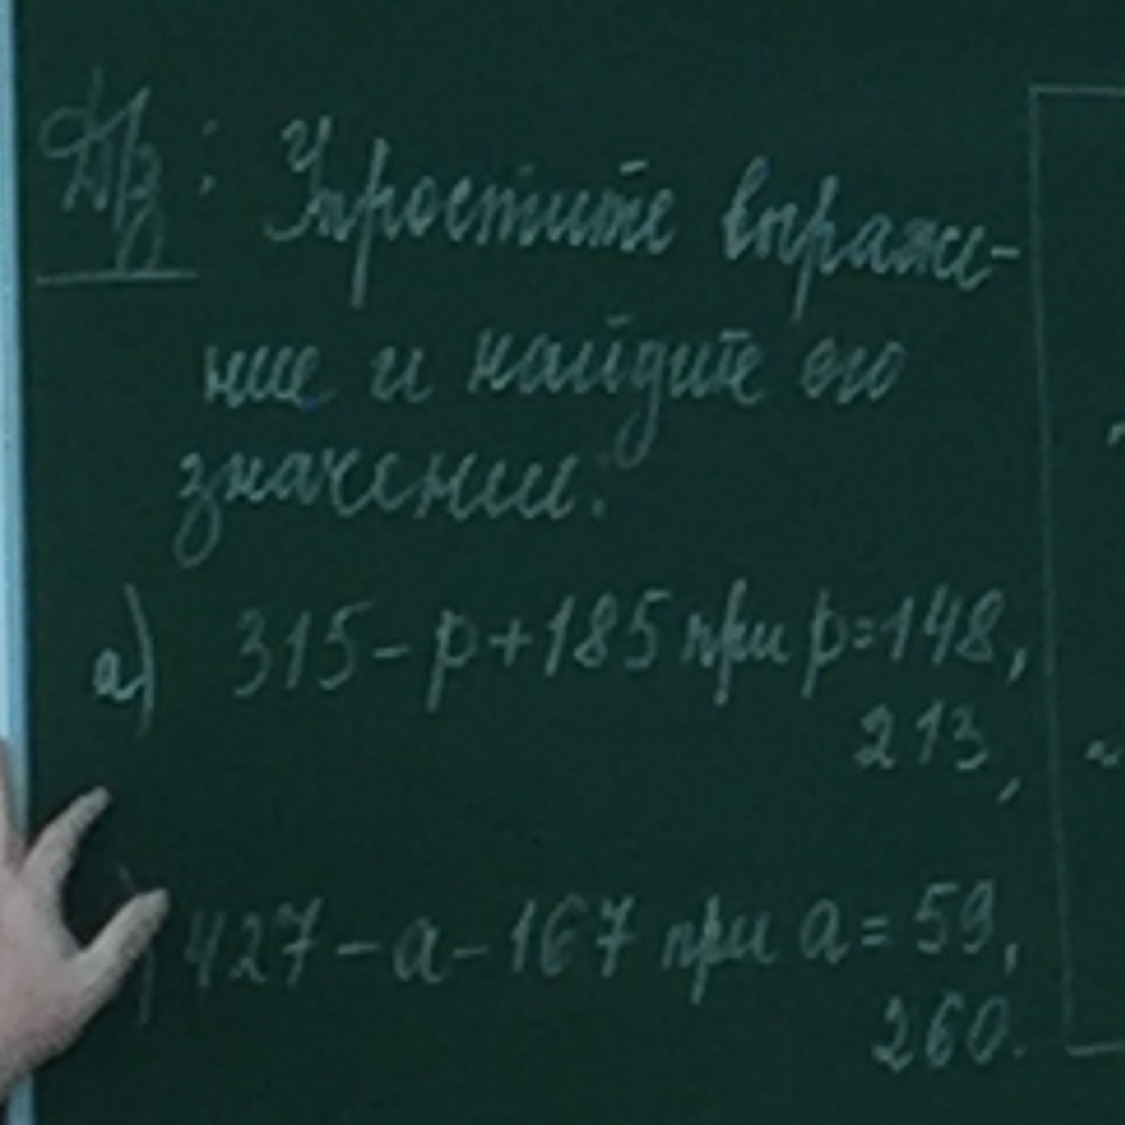 Д/з: Упростите выраже-
ние и найдите его
значение:
а) 315 - p + 185 при p = 148,
213,
) 427 - a - 167 при a = 59,
260.